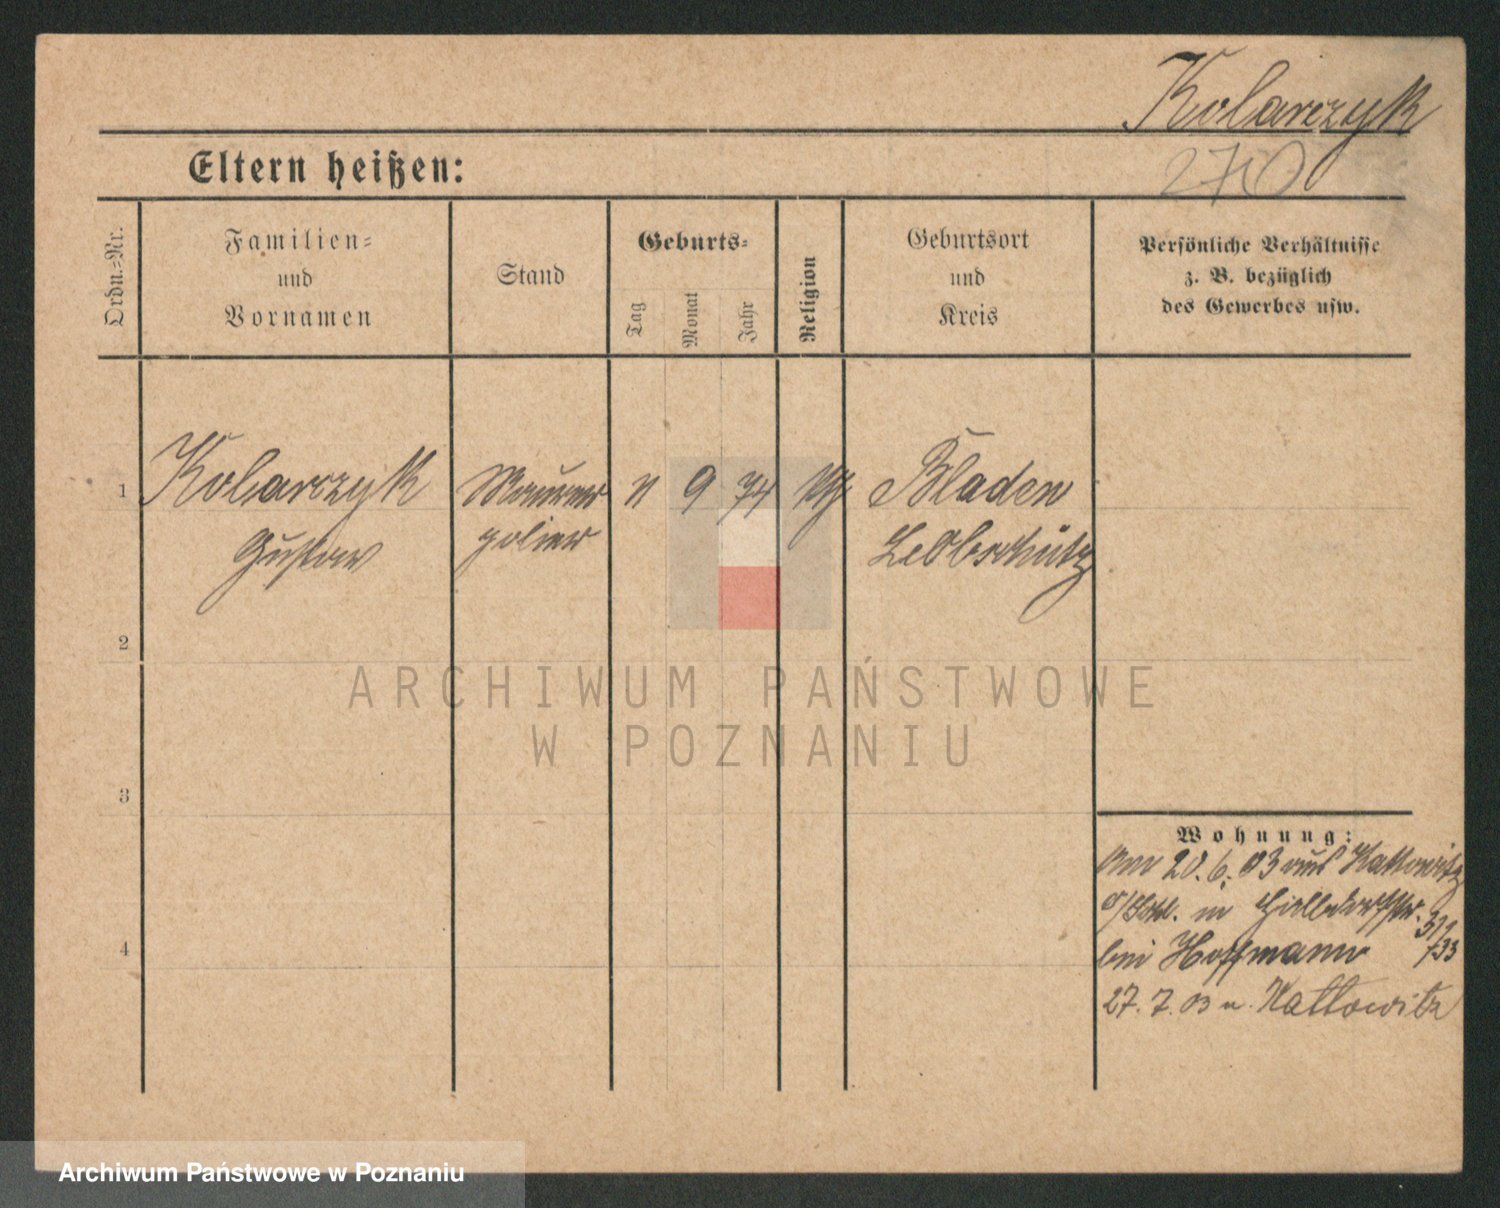 Kolarczyk
270
Eltern heißen:
Ordn.-Nr.
Familien-
und
Vornamen
Stand
Geburts-
Tag
Monat
Jahr
Religion
Geburtsort
und
Kreis
Persönliche Verhältnisse
z. B. bezüglich
des Gewerbes usw.
1
Kolarczyk
Gustav
Maurer
polier
11
9
74
Bladen
Leobschütz
2
3
4
Wohnung:
Am 20.6.03 aus Kattowitz
O/Schl. in
bei Hoffmann
27.7.03 n. Kattowitz
ARCHIWUM PAŃSTWOWE
W POZNANIU
Archiwum Państwowe w Poznaniu